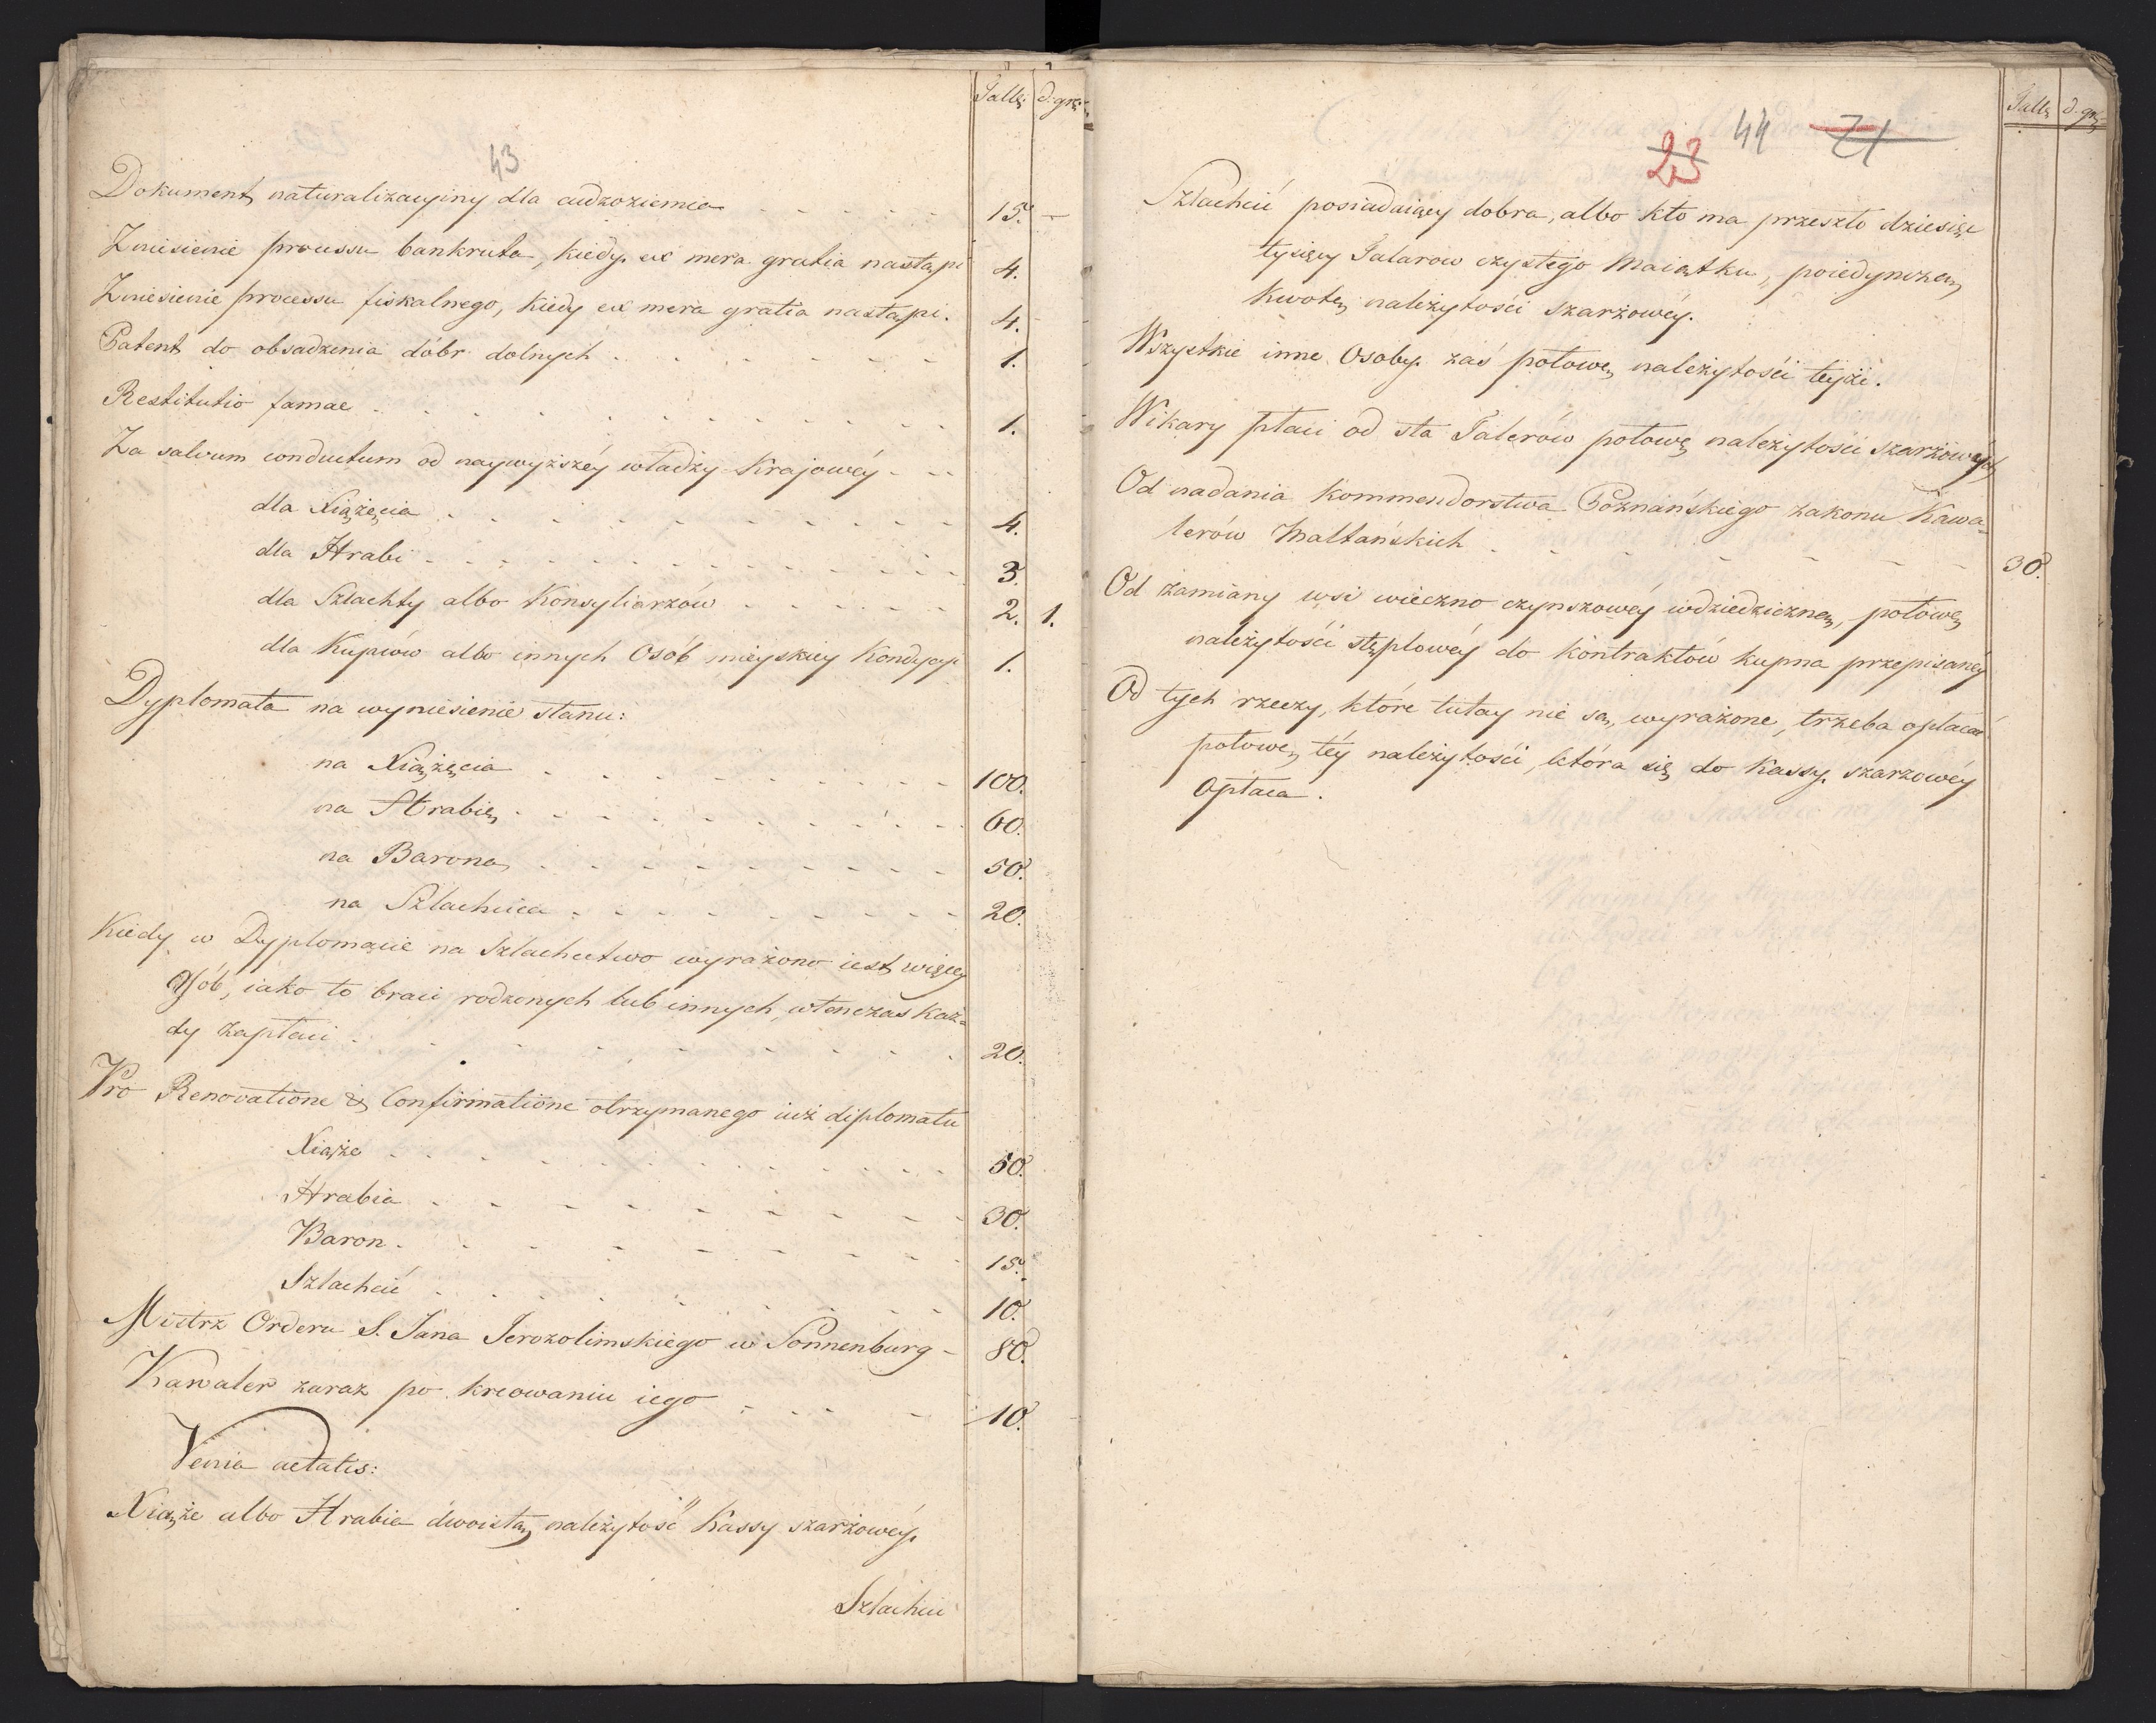 Tall: d: gr:
43
Dokument naturalizacyiny dla cudzoziemca 15. –
Zniesienie processu bankruta, kiedy ex mera gratia nastąpi 4.
Zniesienie processu fiskalnego, kiedy ex mera gratia nastąpi. 4.
Patent do obsadzenia dóbr dolnych 1.
Restitutio famae 1.
Za salvum conductum od naywyższéy władzy Krajowéy
dla Xiążęcia 4.
dla Hrabi 3.
dla Szlachty albo Konsyliarzów 2. 1.
dla Kupców albo innych Osób mieyskiey Kondycyi 1.
Dyplomata na wyniesienie stanu:
na Xiążęcia 100.
na Hrabię 60.
na Barona 50.
na Szlachcica 20.
Kiedy w Dyplomacie na Szlachectwo wyrażono iest więcey
Osób, iako to braci rodzonych lub innych, wtenczas każ=
dy zapłaci 20.
Pro Renovatione & Confirmatione otrzymanego iuż diplomatu
Xiąże 50.
Hrabia 30.
Baron 15.
Szlachcic 10.
Mistrz Orderu S. Jana Jerozolimskiego w Sonnenburg – 80.
Kawaler zaraz po kreowaniu iego 10.
Venia aetatis:
Xiąże albo Hrabia dwoistą należytość Kassy szarżowéy.
Szlachcic
Tall: d. gr:
23 44 71
Szlachcic posiadaiący dobra, albo kto ma przeszło dziesięć
tysięcy Talarow czystego Maiątku, poiedynczą
kwotę należytości szarżowéy.
Wszystkie inne Osoby zaś połowę należytości teyże.
Wikary płaci od sta Talerów połowę należytości szarżowéy
Od nadania Kommendorstwa Poznańskiego zakonu Kawa=
lerów Maltańskich 30.
Od zamiany wsi wieczno czynszowéy wdziedziczną, połowę
należytości stęplowéy do kontraktów kupna przepisanéy
Od tych rzeczy, które tutay nie są wyrażone, trzeba opłacać
połowę téy należytości, która się do Kassy szarżowéy
opłaca.